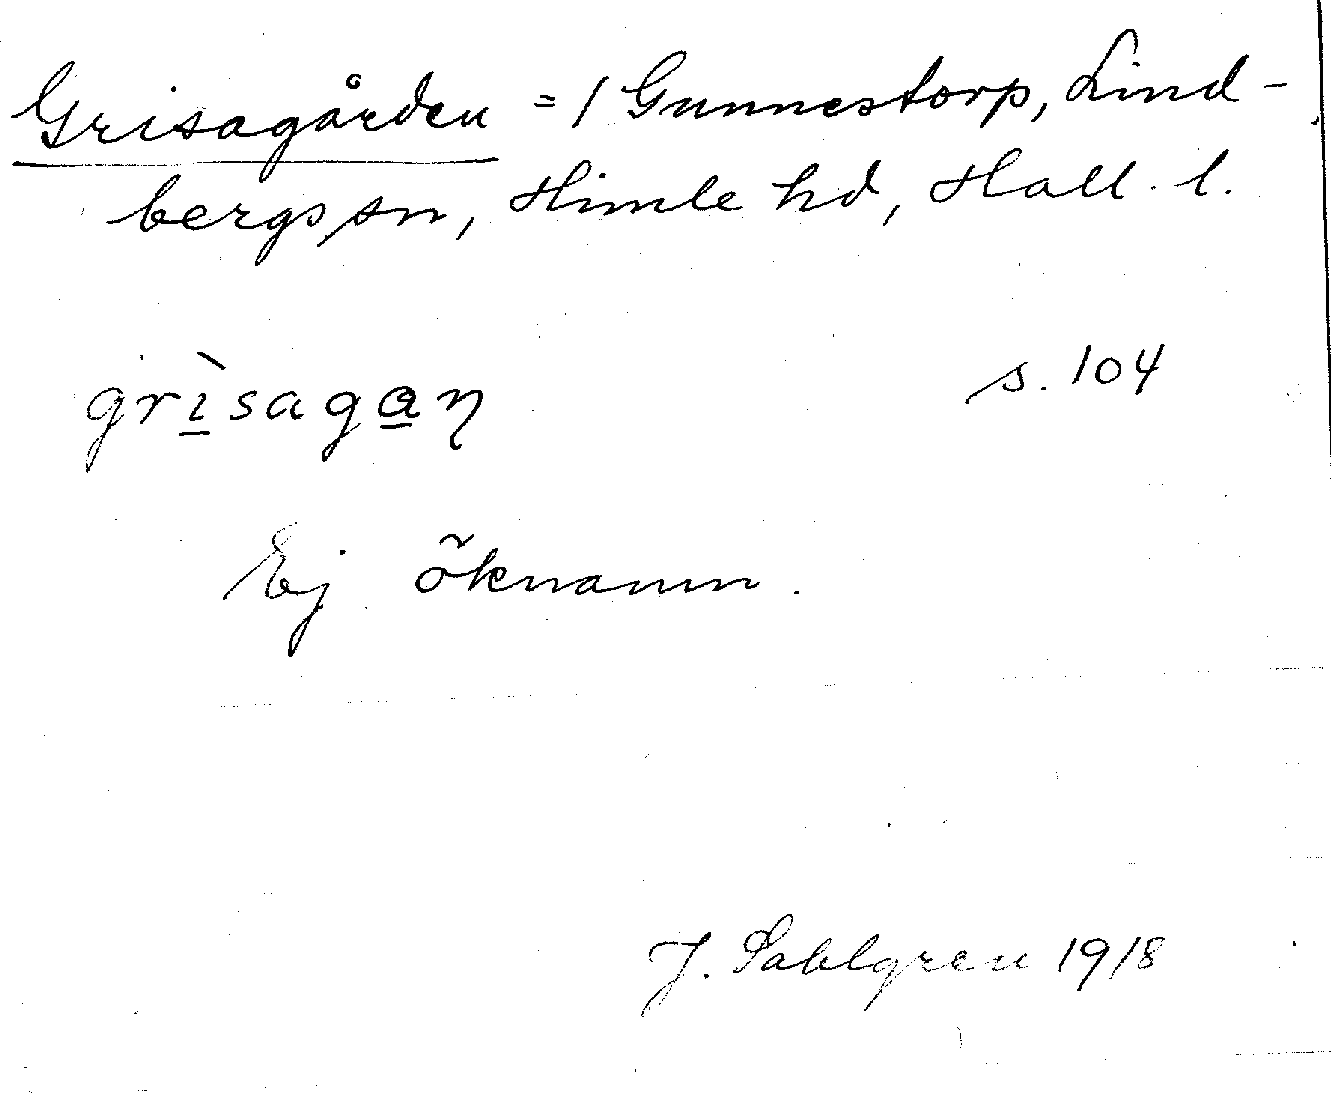 Grisagården = 1 Gunnestorp, Lind-
bergs sn, Himle hd, Hall. l.
grìsagaɳ s. 104
Ej öknamn.
J. Sahlgren 1918